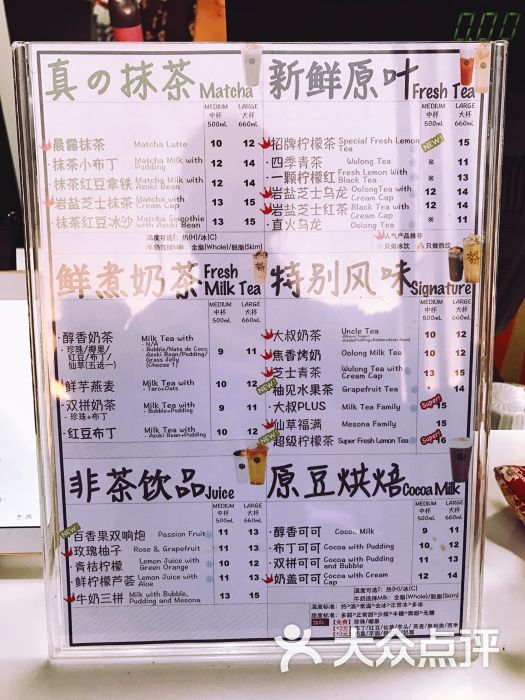 0.00
真の抹茶 Matcha
MEDIUM 中杯 500mL
LARGE 大杯 660mL
晨露抹茶 Matcha Latte 10 12
抹茶小布丁 Matcha Milk with Pudding 12 14
抹茶红豆拿铁 Matcha Milk with Azuki Bean 12 14
岩盐芝士抹茶 Matcha with Cream Cap 13 15
抹茶红豆冰沙 Matcha Smoothie with Azuki Bean 13 15
温度可选T: 热(H)/冰(C)
牛奶可选Milk: 全脂(Whole)/脱脂(Skim)
新鲜原叶 Fresh Tea
MEDIUM 中杯 500mL
LARGE 大杯 660mL
招牌柠檬茶 Special Fresh Lemon Tea NEW! 15
四季青茶 Wulong Tea ※ 11
一颗柠檬红 Fresh Lemon With Black Tea 13
岩盐芝士乌龙 OolongTea with Cream Cap 12 14
岩盐芝士红茶 Black Tea with Cream Cap 12 14
直火乌龙 Oolong Tea ※ 11
人气产品推荐
只做冰饮 只做热饮
鲜煮奶茶 Fresh Milk Tea
MEDIUM 中杯 500mL
LARGE 大杯 660mL
醇香奶茶 Milk Tea with 9 11
·珍珠/椰果/红豆/布丁/仙草(五选一)
• N/A
• Bubble/Nata de Coco
Azuki Bean/Pudding/
Grass Jelly
(Choose 1)
鲜芋燕麦 Milk Tea with •Taro+Oats 10 12
双拼奶茶 ·珍珠+布丁 Milk Tea with •Bubble+Pudding 9 11
红豆布丁 Milk Tea with •Azuki Bean+Pudding 10 12
特别风味 Signature
MEDIUM 中杯 500mL
LARGE 大杯 660mL
大叔奶茶 Uncle Tea 10 12
焦香烤奶 Oolong Milk Tea 10 12
芝士青茶 Wulong Tea with Cream Cap 11 13
NEW! 柚见水果茶 Grapefruit Tea 12 14
大叔PLUS Milk Tea Family Super! 15
仙草福满 Mesona Family 13 15
NEW! 超级柠檬茶 Super Fresh Lemon Tea Super! 16
非茶饮品 Juice
MEDIUM 中杯 500mL
LARGE 大杯 660mL
NEW! 百香果双响炮 Passion Fruit 11 13
玫瑰柚子 Rose & Grapefruit 11 13
青桔柠檬 Lemon Juice with Green Orange 10 12
鲜柠檬芦荟 Lemon Juice with Aloe 13 15
牛奶三拼 Milk with Bubble, Pudding and Mesona 11 13
原豆烘焙 Cocoa Milk
MEDIUM 中杯 500mL
LARGE 大杯 660mL
醇香可可 Cocoa Milk 9 11
布丁可可 Cocoa with Pudding 10 12
双拼可可 Cocoa with Pudding and Bubble 11 13
奶盖可可 Cocoa with Cream Cap 12 14
温度可选T: 热(H)/冰(C)
牛奶选择Milk: 全脂(Whole)/脱脂(Skim)
温度标准: 热>温>常温>去冰>正常冰>多冰
甜度标准: 多甜>正常甜>少甜>半糖>微糖>无糖
大众点评